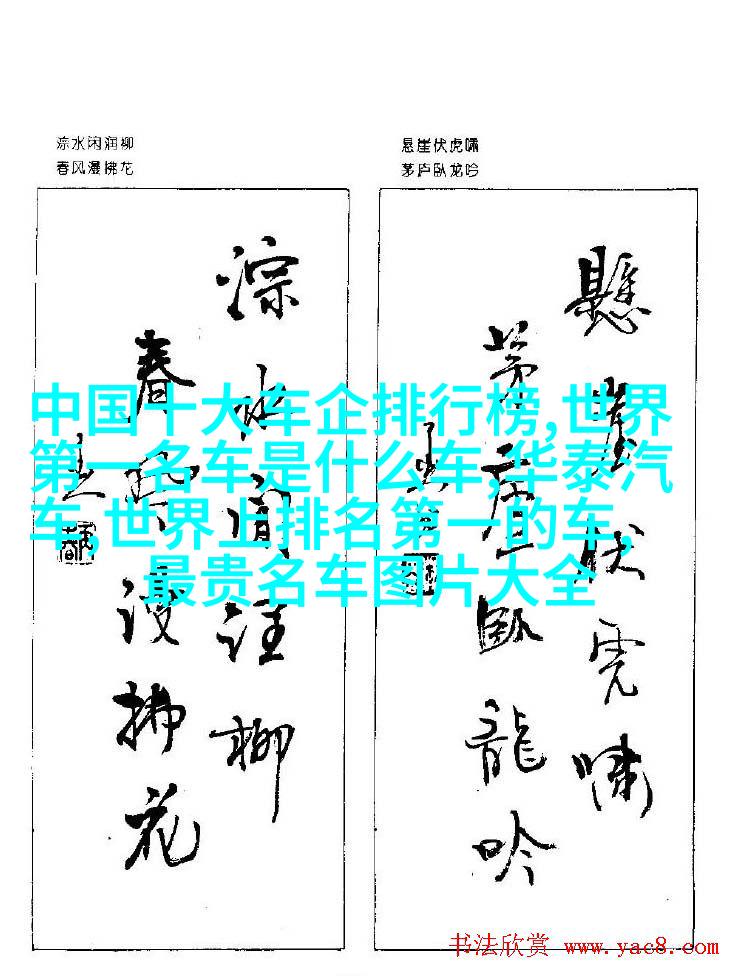 淙水闲润柳
春风漫拂花
悬崖伏虎啸
茅庐卧龙吟
淙水闲注柳
春风漫拂花
懸崖伏虎嘯
茅廬臥龍吟
中国十大车企排行榜,世界
第一名车是什么车,华泰汽
车,世界上排名第一的车，
最贵名车图片大全
书法欣赏 www.yac8.com